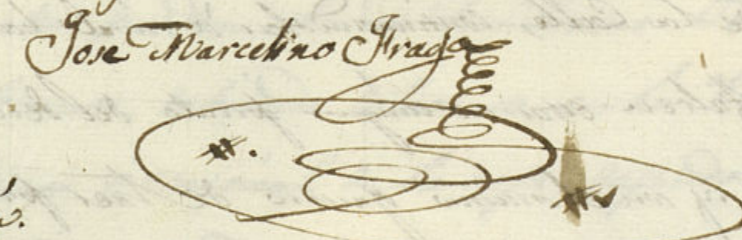 Jose Marcelino Frago